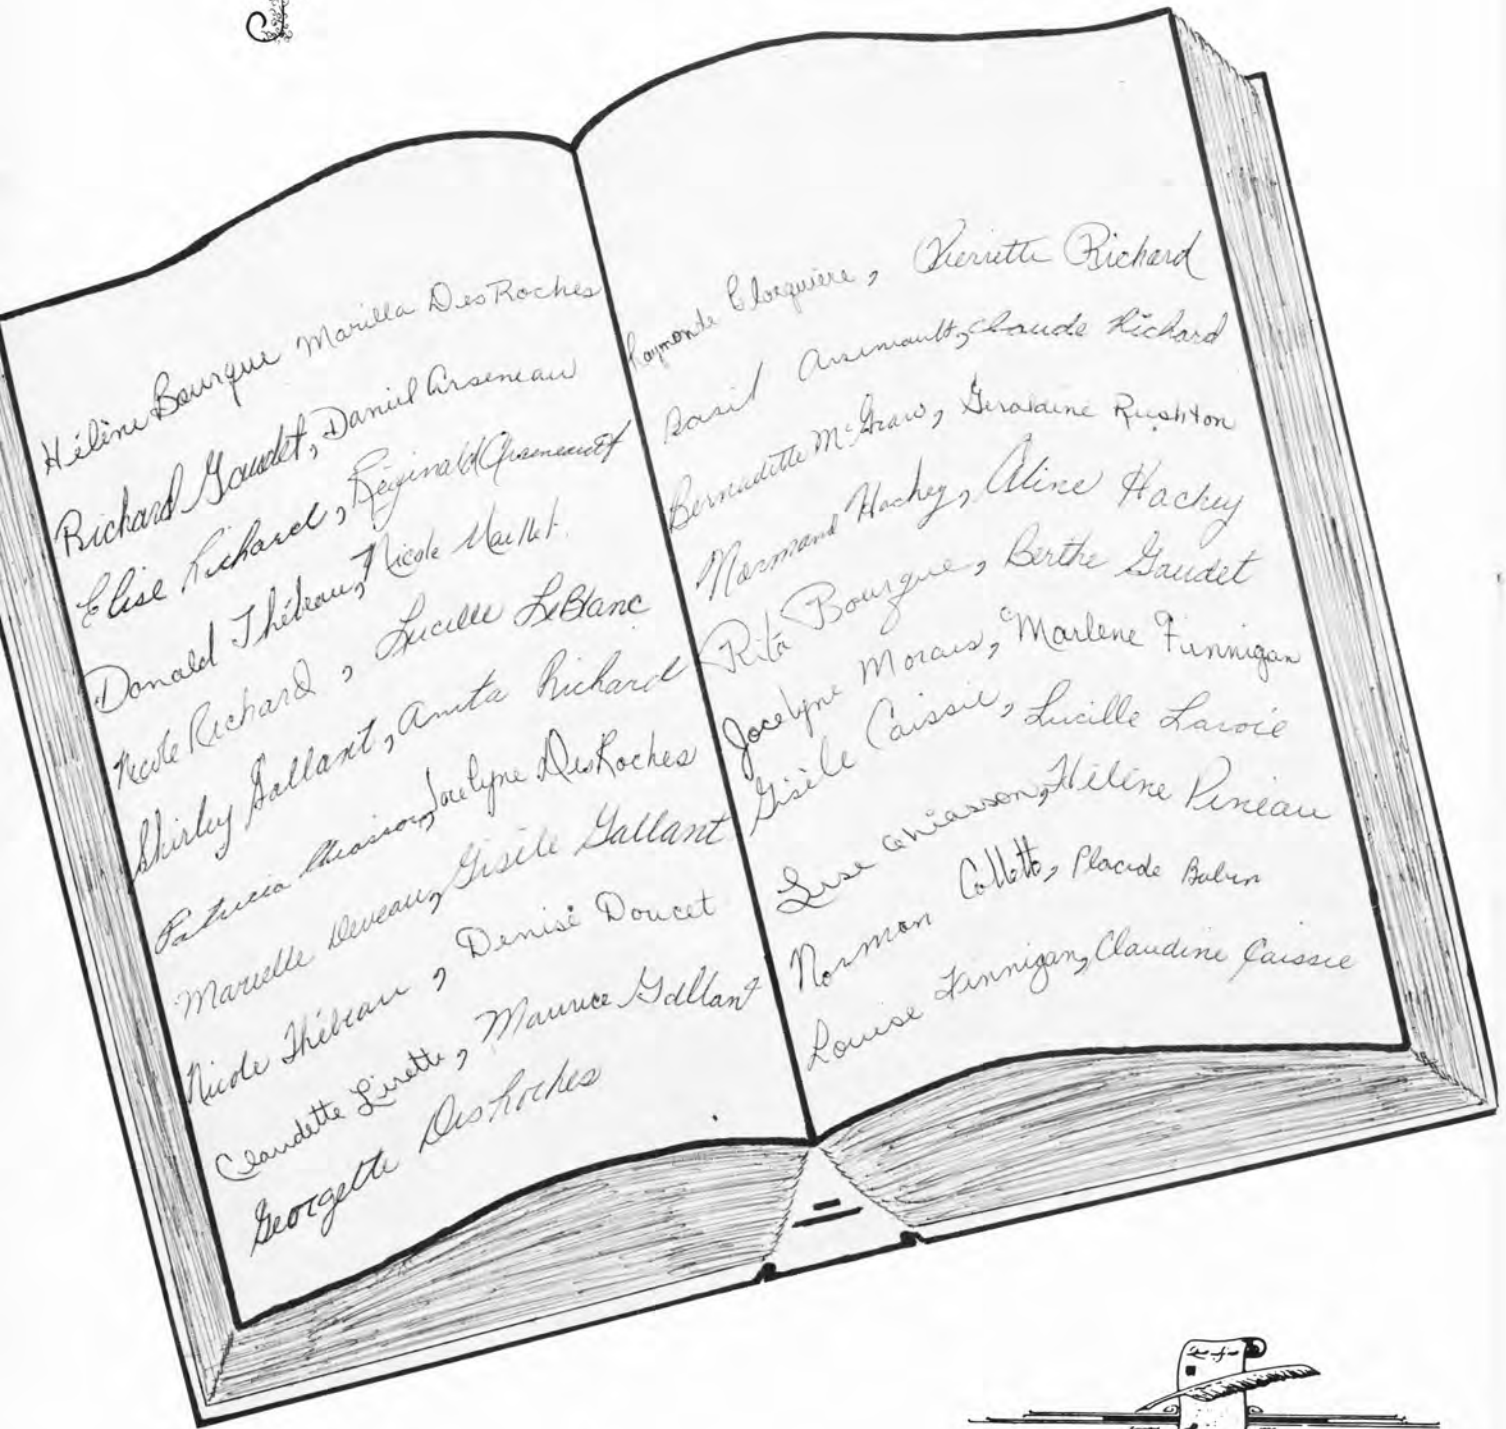 Hélène Bourque Marilla DesRoches
Richard Gaudet, Daniel Arseneau
Elise Richard, Réginald Arseneault
Donald Thébeau, Nicole Maillet.
Nicole Richard, Lucille LeBlanc
Shirley Gallant, Anita Richard
Patricia Chiasson, Jocelyne DesRoches
Marielle Deveau, Gisèle Gallant
Nicole Thébeau, Denise Doucet
Claudette Lirette, Maurice Gallant
Georgette DesRoches
Raymonde, Pierrette Richard
Basil Arsenault, Claude Richard
Bernadette McGraw, Geraldine Rushton
Normand Hachey, Aline Hachey
Rita Bourque, Berthe Gaudet
Jocelyne Morais, Marlene Finnigan
Gisèle Caissie, Lucille Lavoie
Lise Chiasson, Hélène Pineau
Norman Collette, Placide Babin
Louise Finnigan, Claudine Caissie